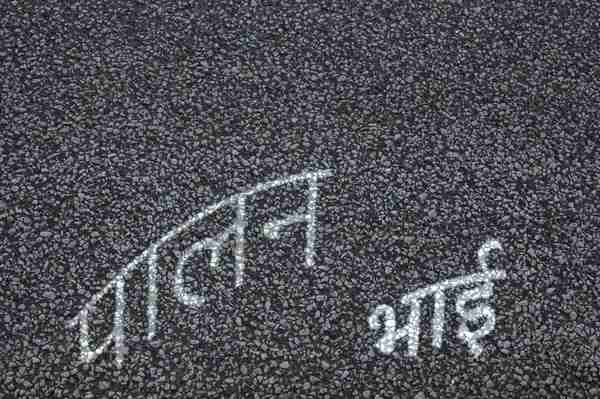 पालन
भाई